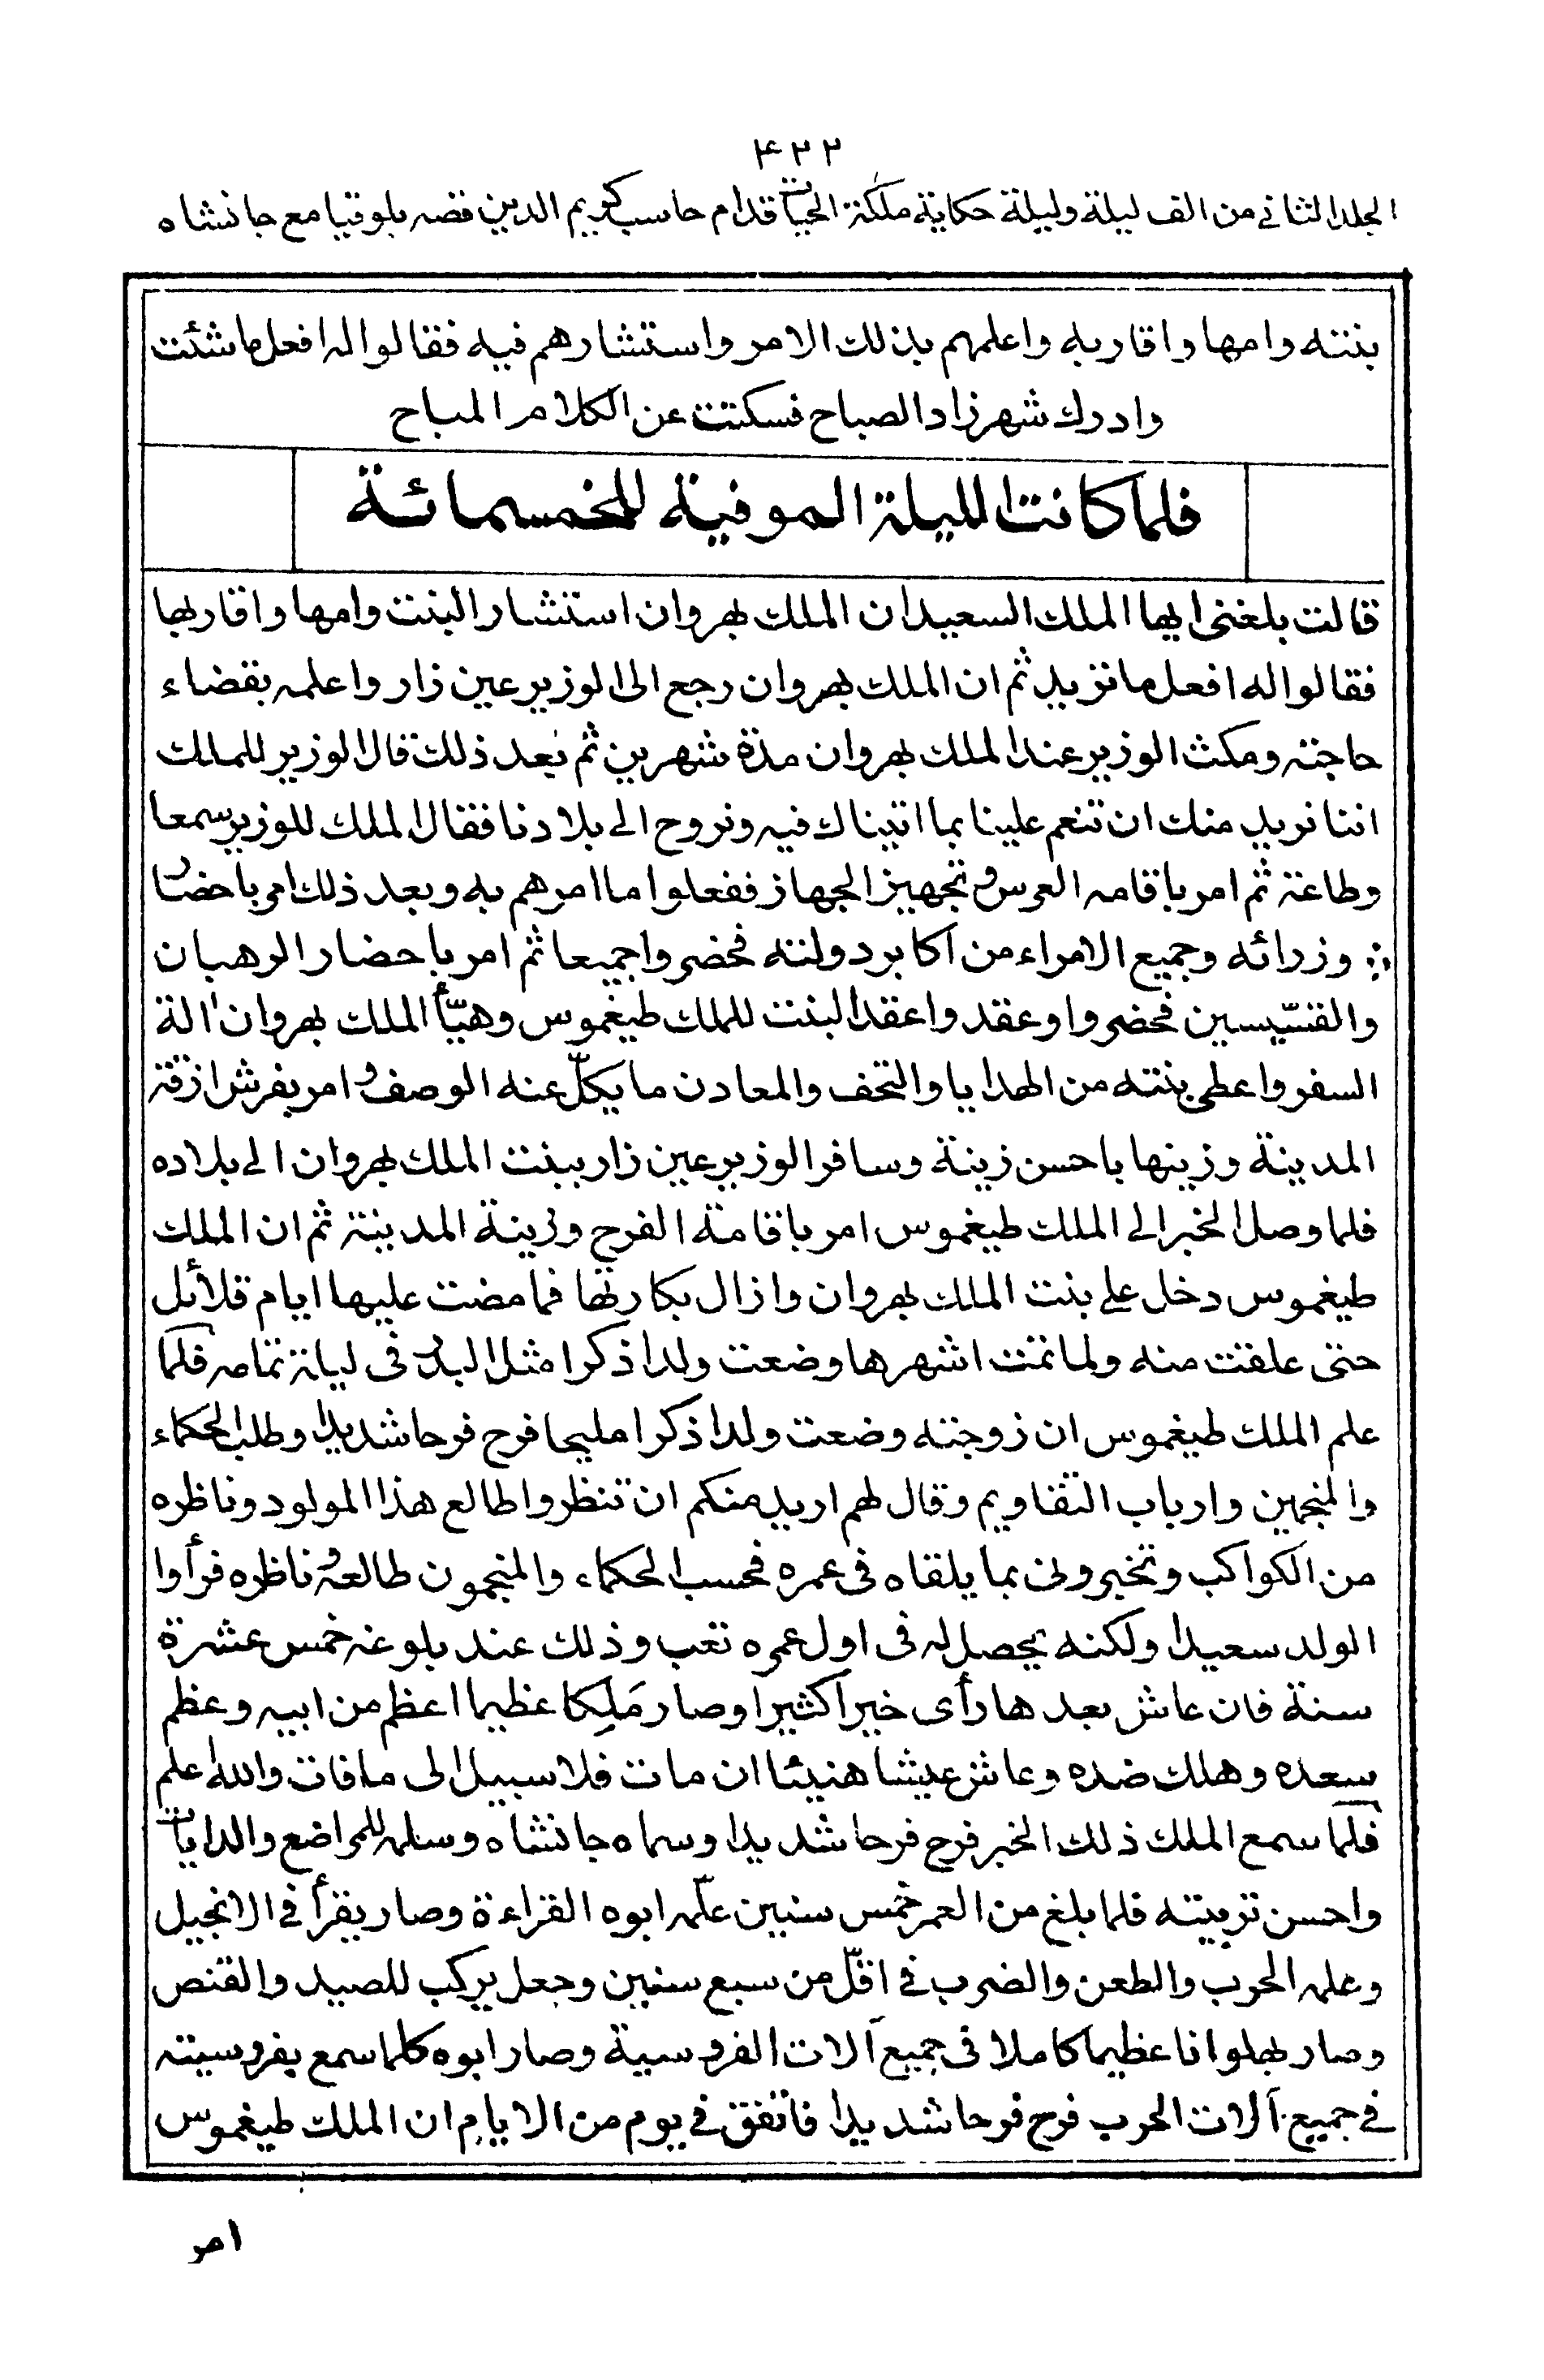 ۴۲۲
الجلد الثاني من الف ليلة وليلة حكاية ملكة الحيات قدام حاسب كريم الدين قصه بلوقيا مع جانشاه
بنته وامها واقاربه واعلمهم بذلك الامر واستشارهم فيه فقالوا له افعل ما شئت
وادرك شهرزاد الصباح فسكتت عن الكلام المباح
فلما كانت الليلة الموفية للخمسمائة
قالت بلغنى ايها الملك السعيد ان الملك بهروان استشار البنت وامها واقاربها
فقالوا له افعل ما تريد ثم ان الملك بهروان رجع الى الوزير عين زار واعلمه بقضاء
حاجته ومكث الوزير عند الملك بهروان مدة شهرين ثم بعد ذلك قال الوزير للملك
اننا نريد منك ان تنعم علينا بما اتيناك فيه ونروح الى بلادنا فقال الملك للوزير سمعا
وطاعة ثم امر باقامه العرس وتجهيز الجهاز ففعلوا ما امرهم به وبعد ذلك امر باحضار
وزرائه وجميع الامراء من اكابر دولته فحضروا جميعا ثم امر باحضار الرهبان
والقسّيسين فحضروا وعقد واعقد البنت للملك طيغموس وهيّأ الملك بهروان الة
السفر واعطى بنته من الهدايا والتحف والمعادن ما يكلّ عنه الوصف وامر بفرش ازقة
المدينة وزينها باحسن زينة وسافر الوزير عين زار ببنت الملك بهروان الى بلاده
فلما وصل الخبر الى الملك طيغموس امر باقامة الفرح وزينة المدينة ثم ان الملك
طيغموس دخل على بنت الملك بهروان وازال بكارتها فما مضت عليها ايام قلائل
حتى علقت منه ولما تمت اشهرها وضعت ولدا ذكرا مثل البدر فى ليلة تمامه فلما
علم الملك طيغموس ان زوجته وضعت ولدا ذكرا مليحا فرح فرحا شديدا وطلب الحكماء
والمنجمين وارباب التقاويم وقال لهم اريد منكم ان تنظروا طالع هذا المولود وناظره
من الكواكب وتخبرونى بما يلقاه فى عمره فحسب الحكماء والمنجمون طالعه وناظره فرأوا
الولد سعيدا ولكنه يحصل له فى اول عمره تعب وذلك عند بلوغه خمس عشرة
سنة فان عاش بعدها رأى خيرا كثيرا وصار مَلِكا عظيما اعظم من ابيه وعظم
سعده وهلك ضده وعاش عيشا هنيئا ان مات فلا سبيل الى ما فات والله اعلم
فلما سمع الملك ذلك الخبر فرح فرحا شديدا وسماه جانشاه وسلمه للمراضع والدايات
واحسن تربيته فلما بلغ من العمر خمس سنين علّمه ابوه القراءة وصار يقرأ فى الانجيل
وعلمه الحرب والطعن والضرب فى اقلّ من سبع سنين وجعل يركب للصيد والقنص
وصار بهلوانا عظيما كاملا فى جميع آلات الفروسية وصار ابوه كلما سمع بفروسيته
فى جميع آلات الحرب فرح فرحا شديدا فاتفق فى يوم من الايام ان الملك طيغموس
امر